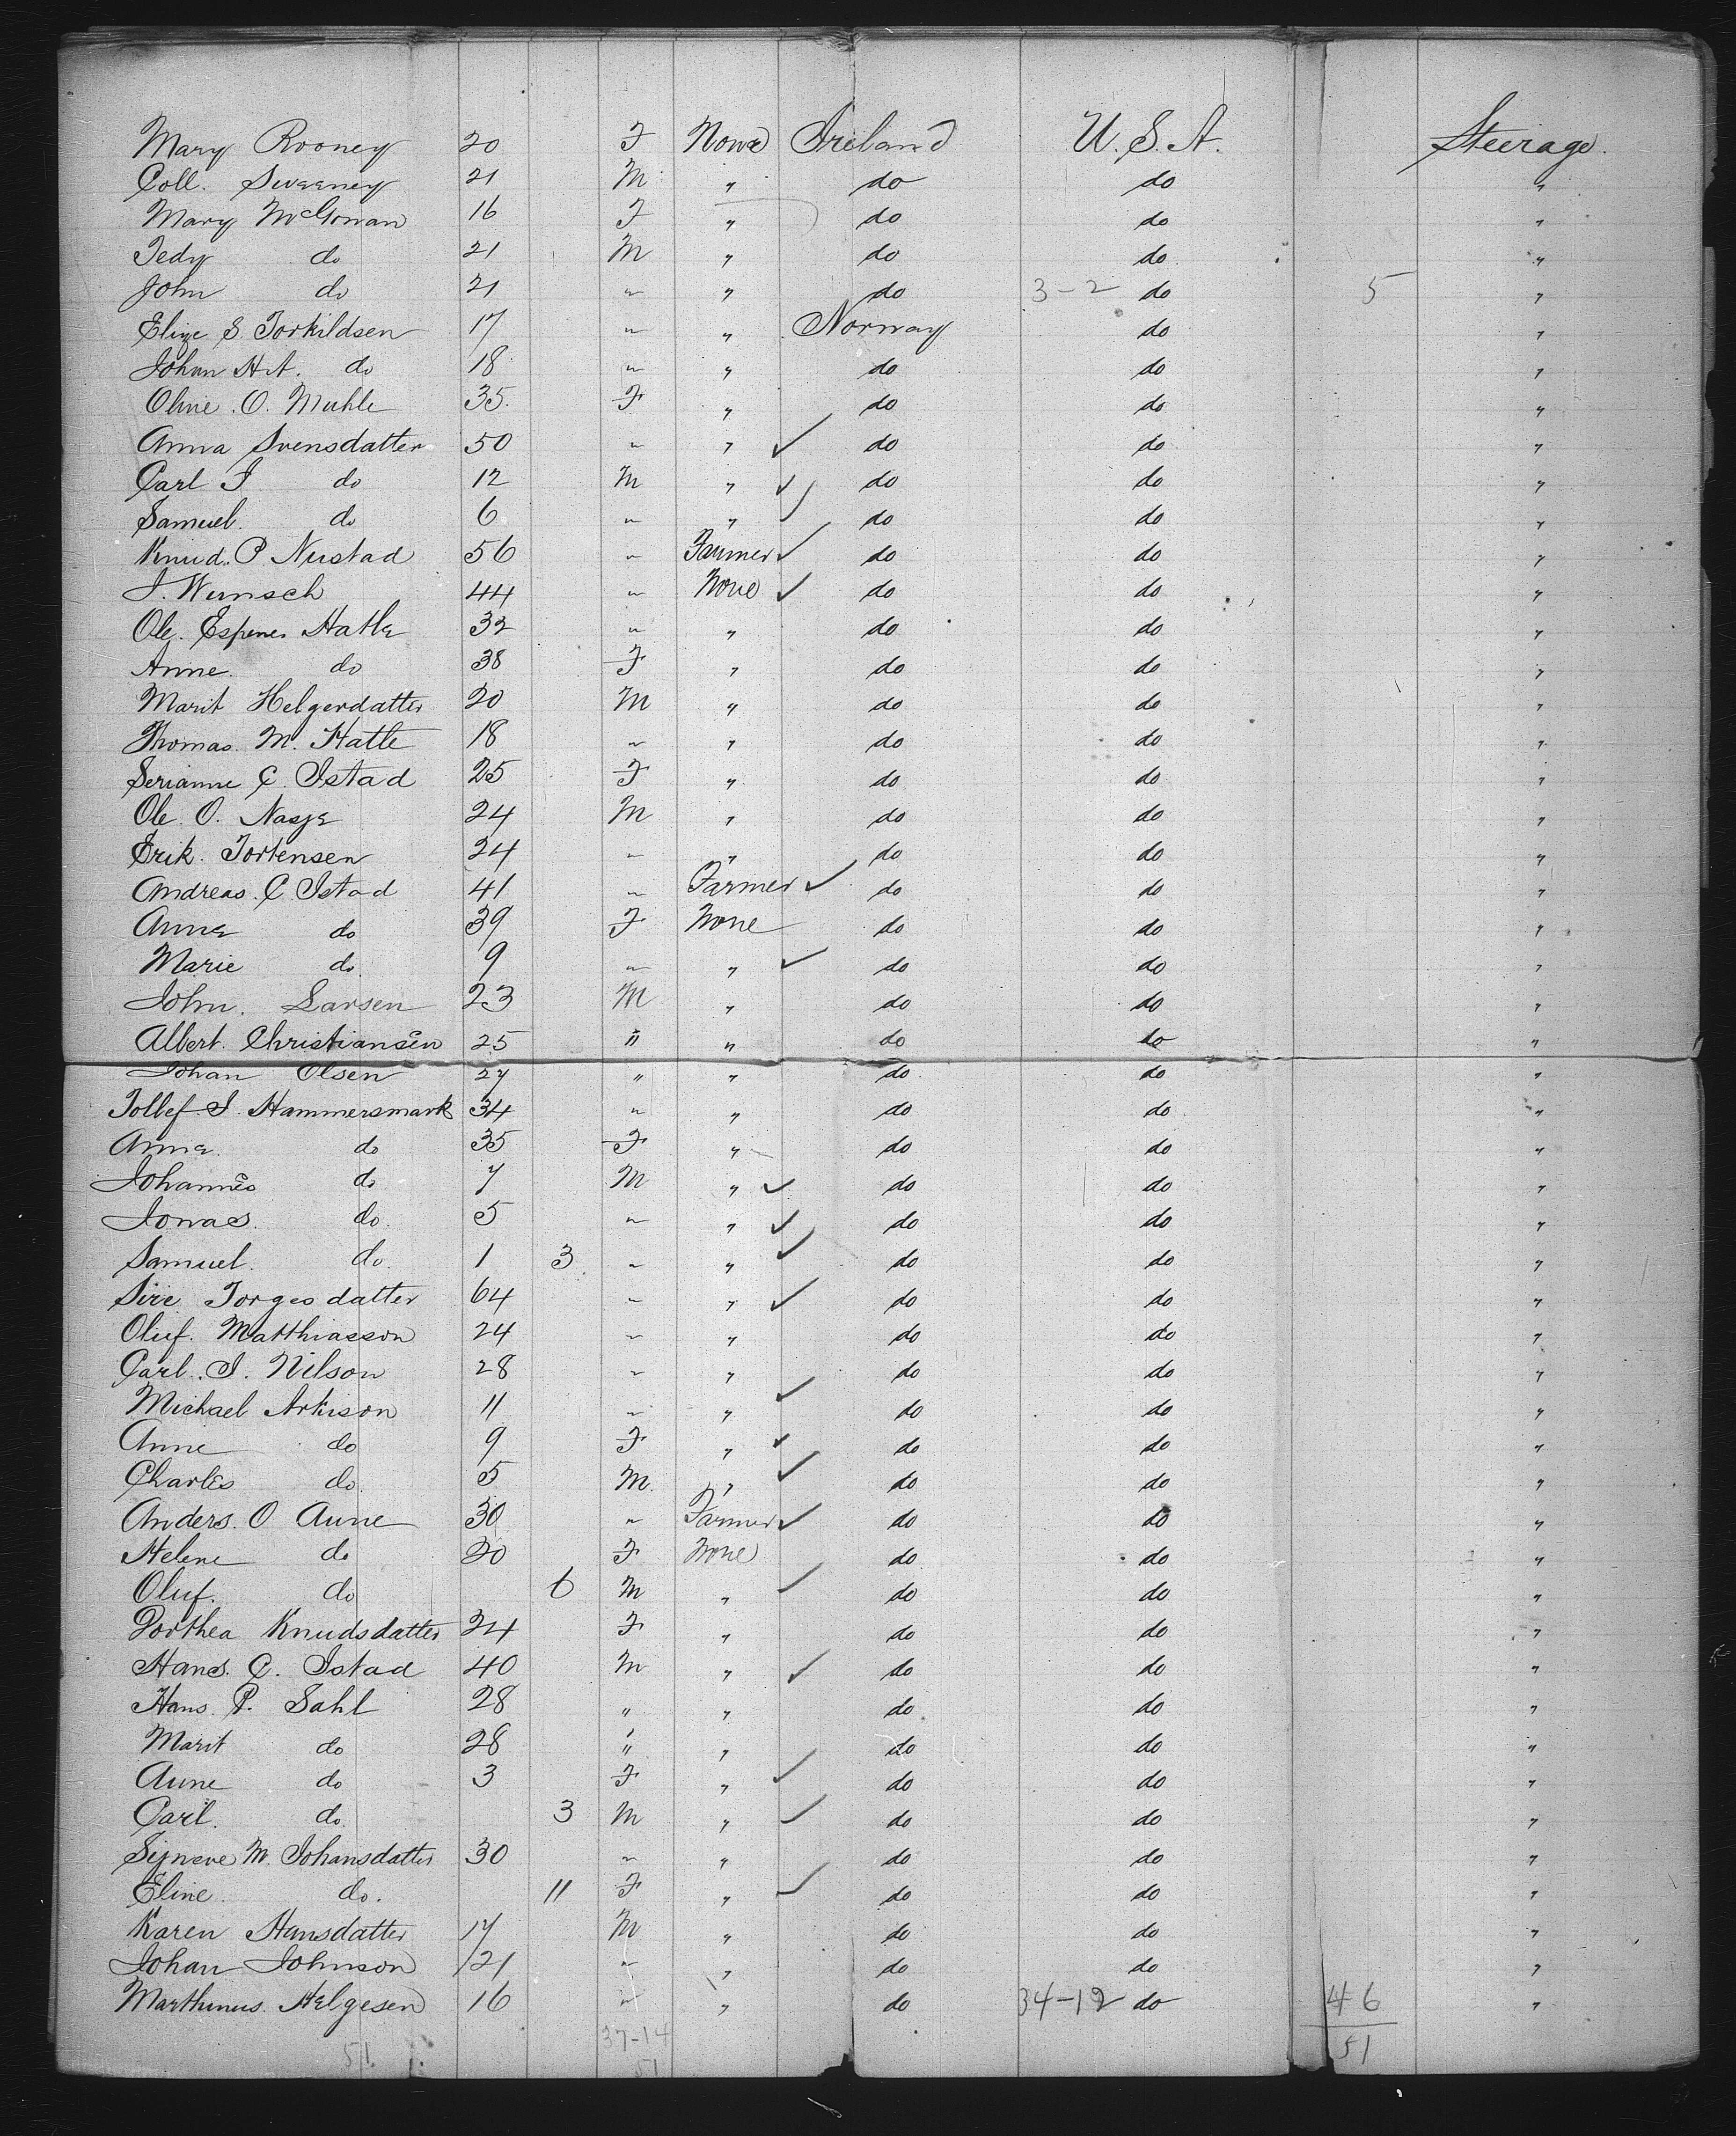 Mary Rooney 20 F None Ireland U.S.A. Steerage.
Coll. Sweeney 21 M " do do "
Mary McGowan 16 F " do do "
Tedy do 21 M " do do "
John do 21 " " do 3-2 do 5 "
Elize S. Torkildsen 17 " " Norway do "
Johan H.A. do 18 " " do do "
Oline O. Muhle 35 F " do do "
Anna Svensdatter 50 " " ✓ do do "
Carl I do 12 M " ✓ do do "
Samuel do 6 " " ✓ do do "
Knud. P Nustad 56 " Farmer ✓ do do "
J. Wunsch 44 " None ✓ do do "
Ole. Espenes Hatle 32 " " do do "
Anne. do 38 F " do do "
Marit Helgerdatter 20 M " do do "
Thomas. M. Hatle 18 " " do do "
Serianne C. Istad 25 F " do do "
Ole. O. Nasje 24 M " do do "
Erik. Tortensen 24 " " do do "
Andreas. C Istad 41 " Farmer ✓ do do "
Anne do 39 F None do do "
Marie do 9 " " ✓ do do "
John. Larsen 23 M " do do "
Albert. Christiansen 25 " " do do "
Johan Olsen 27 " " do do "
Tollef I. Hammersmark 34 " " do do "
Anne do 35 F " do do "
Johannes do 7 M " ✓ do do "
Jonas. do 5 " " ✓ do do "
Samuel. do 1 3 " " ✓ do do "
Sire Torgesdatter 64 " " ✓ do do "
Oluf. Matthiasson 24 " " do do "
Carl. I. Nilson 28 " " do do "
Michael Arkison 11 " " ✓ do do "
Anne do 9 F " ✓ do do "
Charles do 5 M " ✓ do do "
Anders. O Aune 30 " Farmer ✓ do do "
Helene do 20 F None do do "
Oluf. do 6 M " ✓ do do "
Dorthea Knudsdatter 24 F " do do "
Hans. C. Istad 40 M " ✓ do do "
Hans. P. Sahl 28 " " do do "
Marit do 28 " " do do "
Aune do 3 F " ✓ do do "
Carl. do 3 M " ✓ do do "
Signeve M. Johansdatter 30 " " do do "
Eline. do. 11 F " ✓ do do "
Karen Hansdatter 17 M " do do "
Johan Johnson 21 " " do do "
Marthinus. Helgesen 16 " " do 34-12 do 46 "
51 37-14 51
51